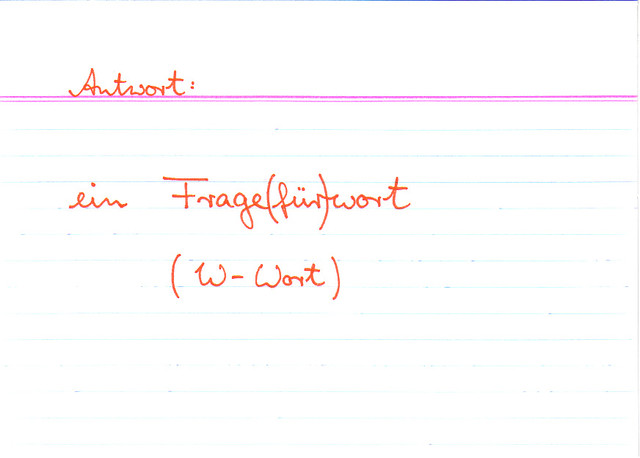 Antwort:
ein Frage(für)wort
(W-Wort)